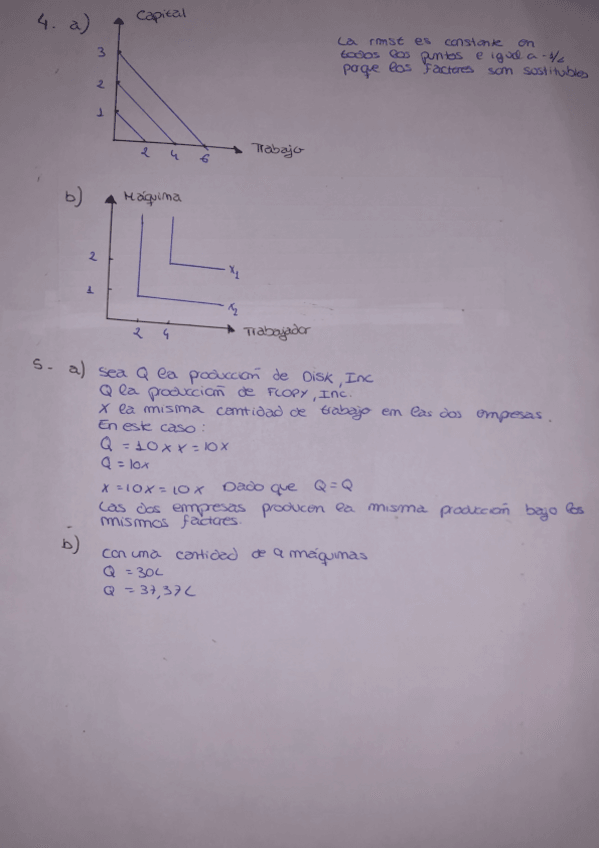 4. a) Capital
3
2
1
2 4 6 Trabajo
La rmst es constante en
todos los puntos e igual a -1/2
porque los factores son sustituibles
b) Máquina
2
1
x1
x2
2 4 Trabajador
5. a) Sea Q la producción de Disk, Inc
Q la producción de FLOPY, Inc.
X la misma cantidad de trabajo em las dos empresas.
En este caso:
Q = 10 x x = 10x
Q = 10x
x = 10x = 10x Dado que Q = Q
Las dos empresas producen la misma producción bajo los
mismos factores.
b) Con una cantidad de 9 máquinas
Q = 30L
Q = 37,37L